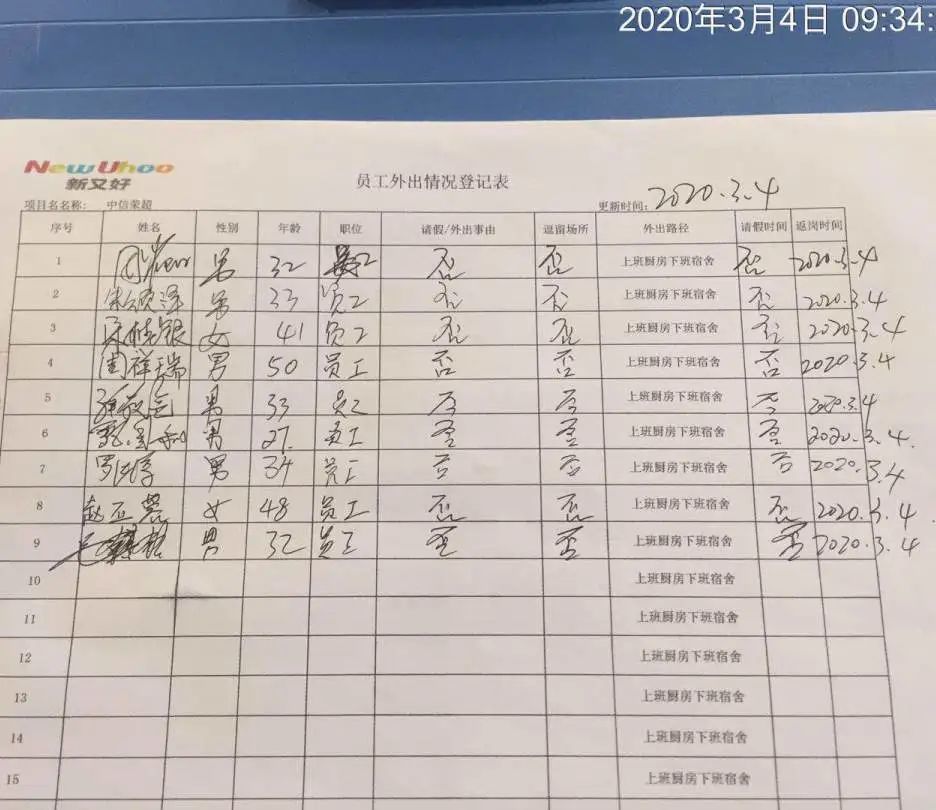 2020年3月4日 09:34:
New Uhoo
新又好
员工外出情况登记表
项目名名称： 中信荣超 更新时间： 2020.3.4
序号 姓名 性别 年龄 职位 请假/外出事由 逗留场所 外出路径 请假时间 返岗时间
1 男 32 员工 否 否 上班厨房下班宿舍 否 2020.3.4
2 男 33 员工 否 否 上班厨房下班宿舍 否 2020.3.4
3 女 41 员工 否 否 上班厨房下班宿舍 否 2020.3.4
4 周祥瑞 男 50 员工 否 否 上班厨房下班宿舍 否 2020.3.4
5 男 33 员工 否 否 上班厨房下班宿舍 否 2020.3.4
6 男 27 员工 否 否 上班厨房下班宿舍 否 2020.3.4.
7 男 34 员工 否 否 上班厨房下班宿舍 否 2020.3.4
8 女 48 员工 否 否 上班厨房下班宿舍 否 2020.3.4
9 男 32 员工 否 否 上班厨房下班宿舍 否 2020.3.4
10 上班厨房下班宿舍
11 上班厨房下班宿舍
12 上班厨房下班宿舍
13 上班厨房下班宿舍
14 上班厨房下班宿舍
15 上班厨房下班宿舍